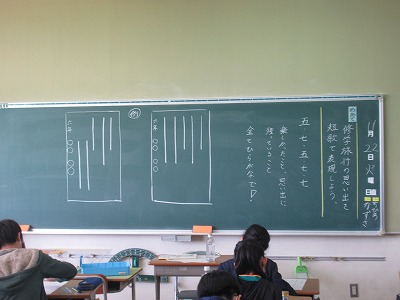 11月22日火曜日
めあて
修学旅行の思い出を
短歌で表現しよう。
五・七・五・七・七
楽しかったこと、思い出に
残っていること
全てひらがなでOK!
六年 ○○ ○○
例
六年 ○○ ○○